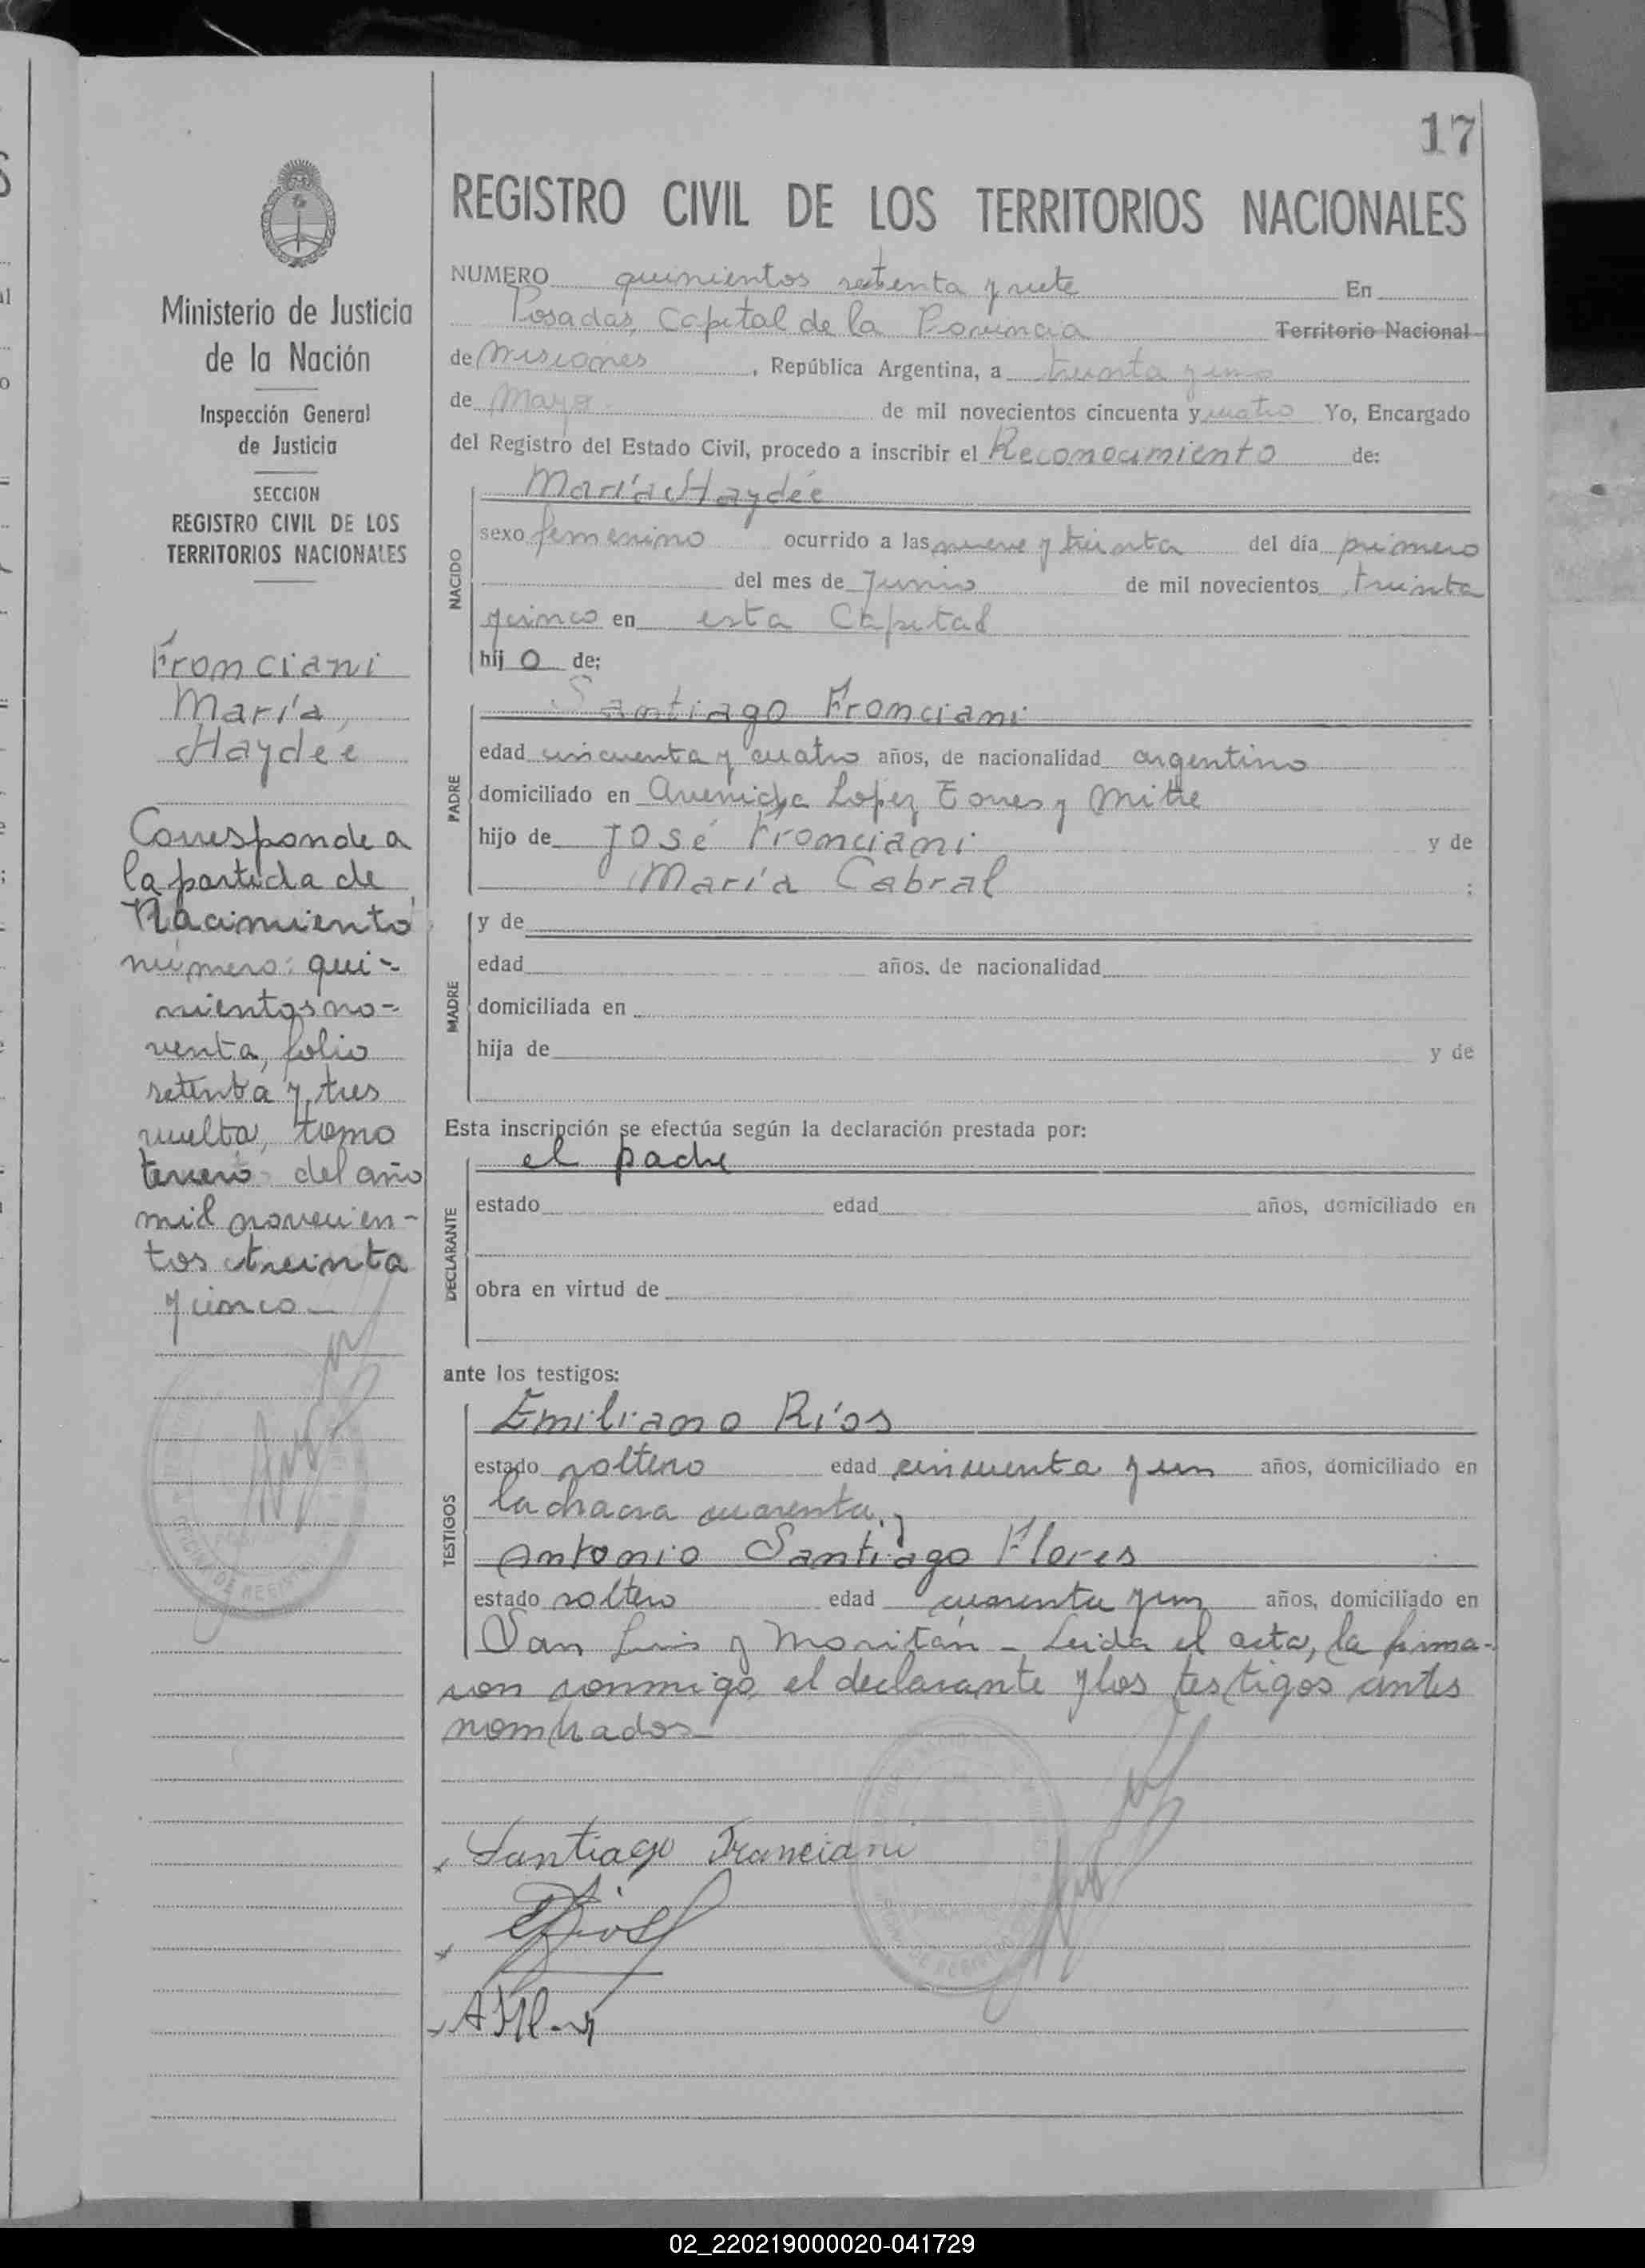 17
REGISTRO CIVIL DE LOS TERRITORIOS NACIONALES
Ministerio de Justicia
de la Nación
Inspección General
de Justicia
SECCION
REGISTRO CIVIL DE LOS
TERRITORIOS NACIONALES
Fronciani
María
Haydée
Corresponde a
la partida de
Nacimiento
número: qui-
nientos no-
venta, folio
setenta y tres
vuelta, tomo
tercero del año
mil novecien-
tos treinta
y cinco
NUMERO quinientos setenta y siete En
Posadas, Capital de la Provincia Territorio Nacional
de Misiones, República Argentina, a treinta y uno
de Mayo de mil novecientos cincuenta y cuatro Yo, Encargado
del Registro del Estado Civil, procedo a inscribir el Reconocimiento de:
NACIDO
María Haydée
sexo femenino ocurrido a las nueve y treinta del día primero
del mes de Junio de mil novecientos treinta
y cinco en esta Capital
hij o de:
PADRE
Santiago Fronciani
edad cincuenta y cuatro años, de nacionalidad argentino
domiciliado en Avenida Lopez Torres y Mitre
hijo de José Fronciani y de
María Cabral ;
MADRE
y de
edad años, de nacionalidad
domiciliada en
hija de y de
Esta inscripción se efectúa según la declaración prestada por:
DECLARANTE
el padre
estado edad años, domiciliado en
obra en virtud de
ante los testigos:
TESTIGOS
Emiliano Ríos
estado soltero edad cincuenta y un años, domiciliado en
la chacra cuarenta y
Antonio Santiago Flores
estado soltero edad cuarenta y un años, domiciliado en
San Luis y Moritán - Leida el acta, la firma-
ron conmigo el declarante y los testigos antes
nombrados
Santiago Franciani
02_220219000020-041729